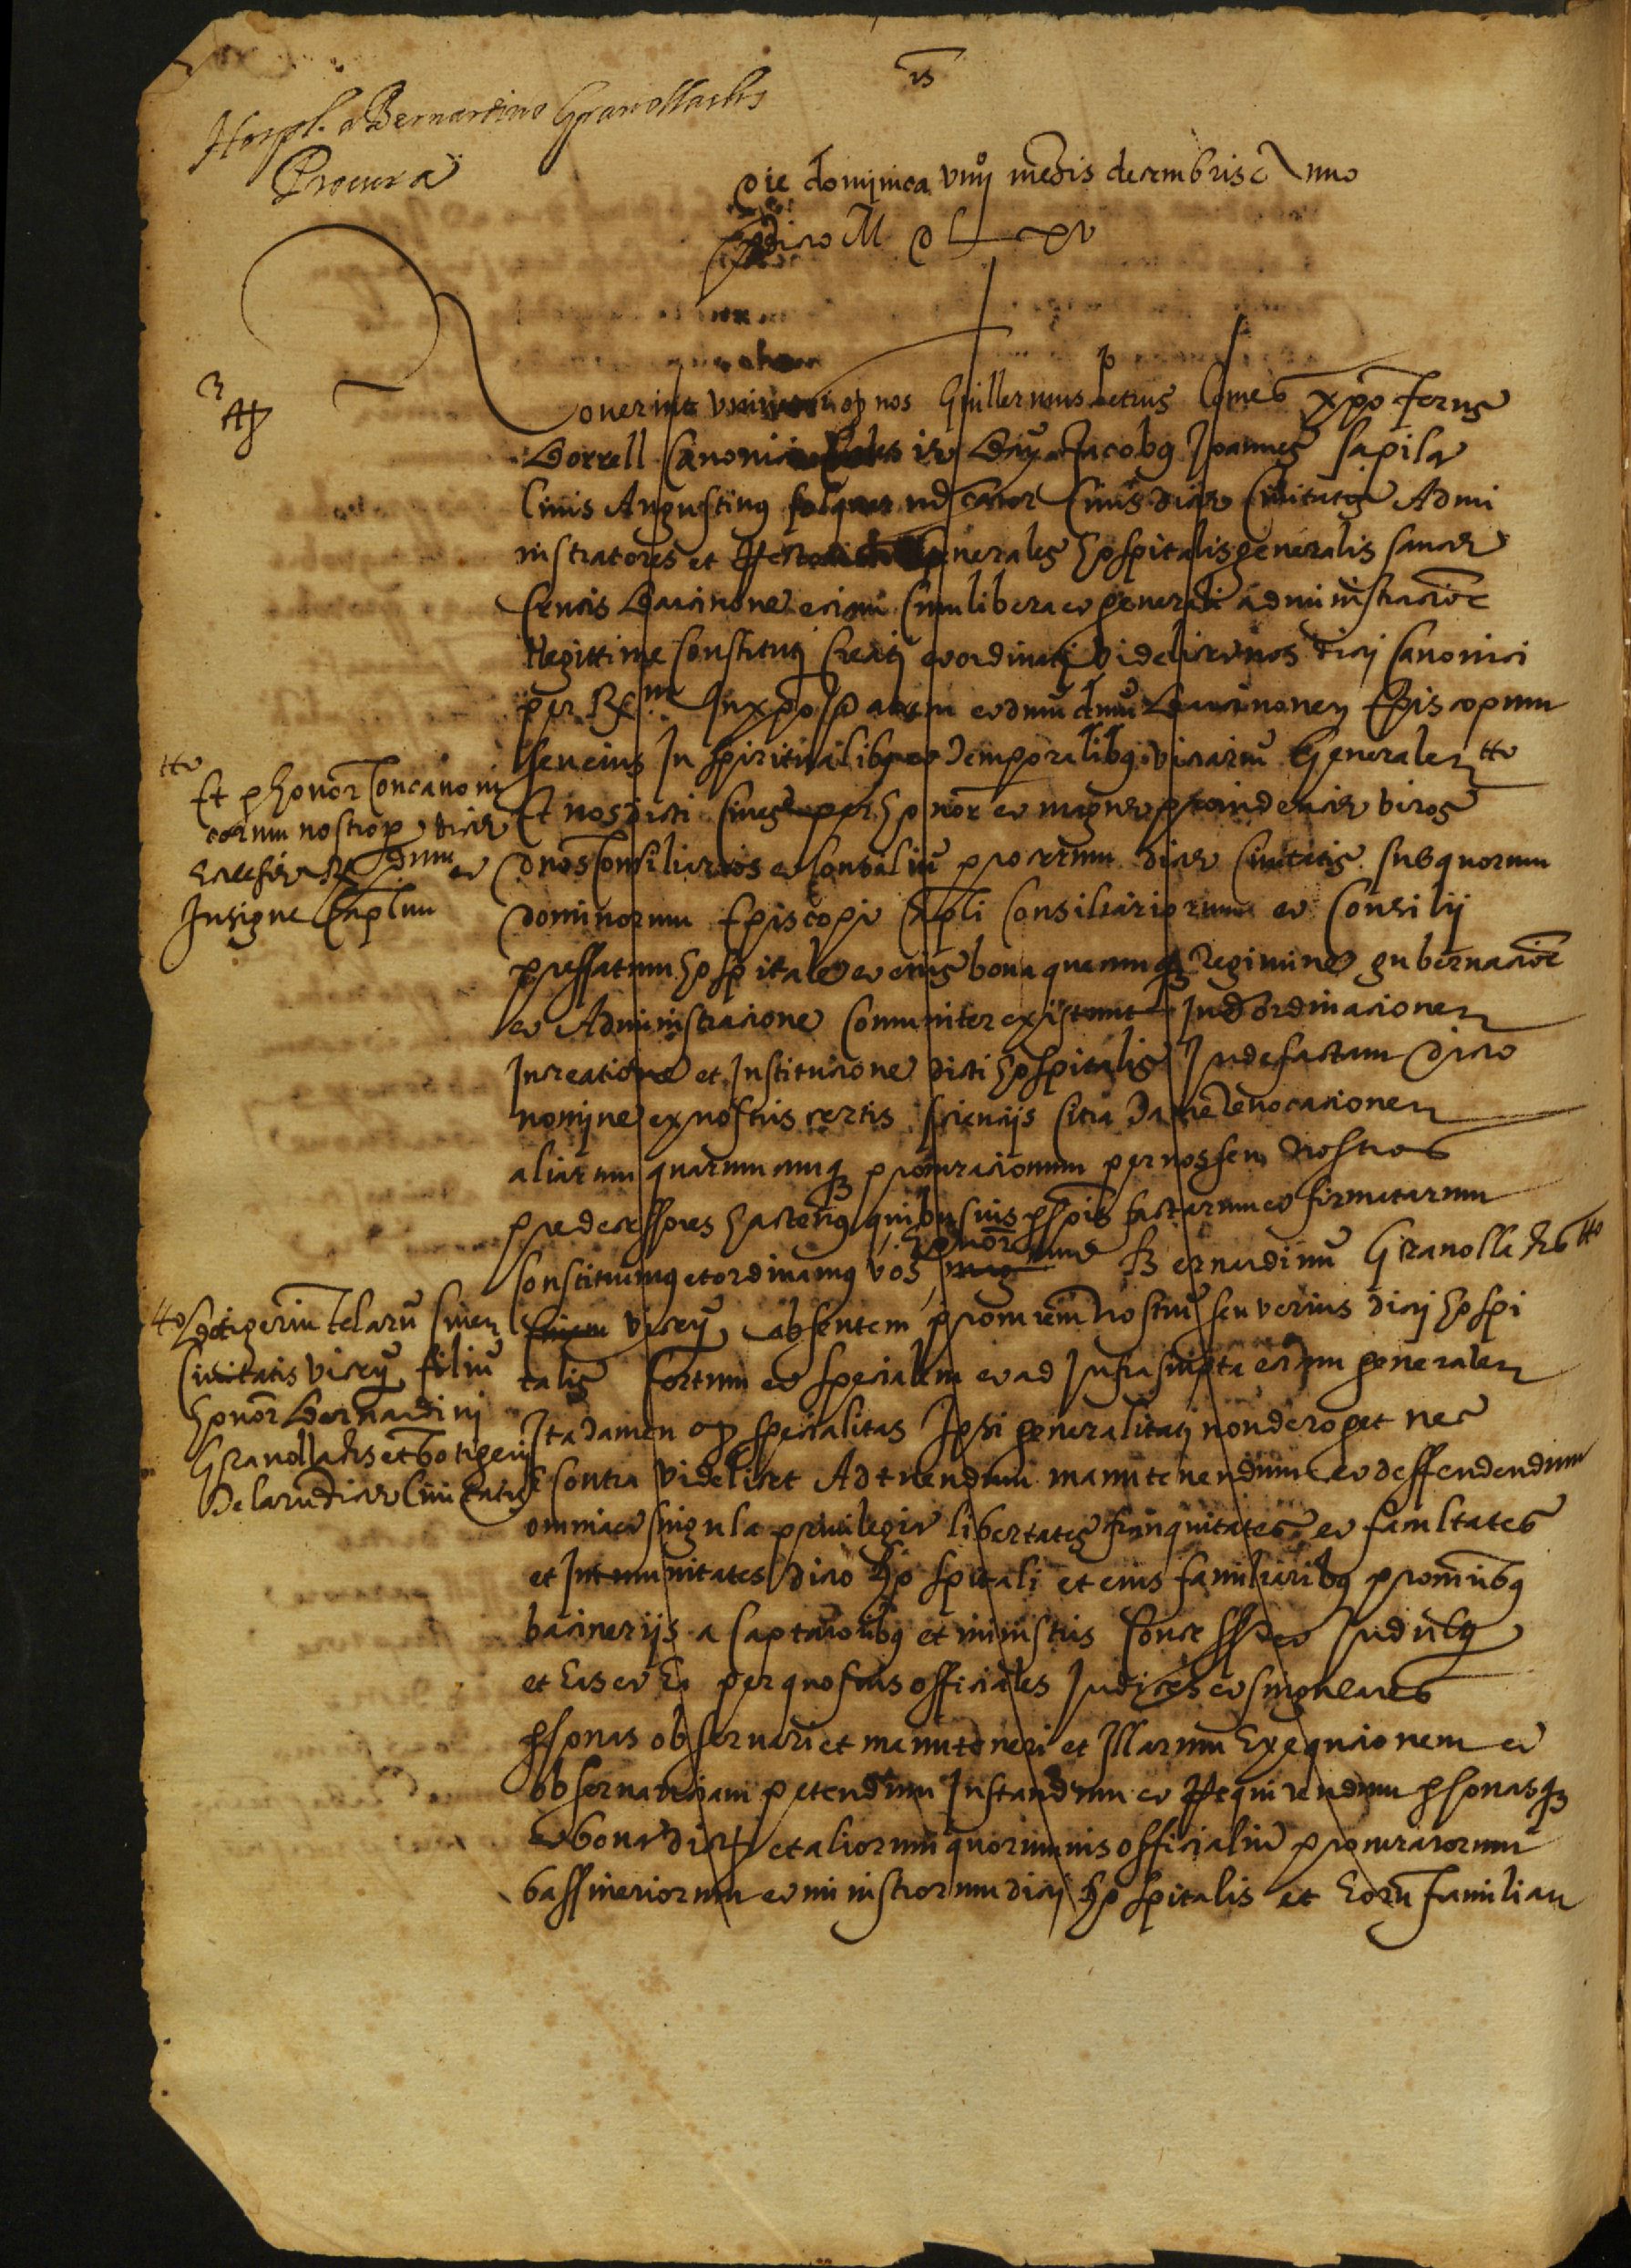 Hospl. a Bernardino Granollachs
Procura
Die dominica viiij mensis decembris Anno
predicto M D L xv
Noverint universi q nos Guillermus Petrus Comes xpoferus
Borrell Canonici et Jacobus Joannes Sapila
Civis Augustinus nec Civis dicte Civitatis Admi
nistratores et generales hospitalis generalis sancte
Crucis Barcinone eciam cum libera et generali administracioe
llegittime constituti creati et ordinati videlicet nos dicti canonici
per R.m In xpo patrem et dnum dnum Barcinonen Episcopum
seu eius In spiritualibus et temporalibus vicarium Generalem
Et nos dicti Cives per honor et magne providencie viros
dnos Consiliarios et Consilium procerum dicte Civitatis sub quorum
dominorum Episcopi Capli Consiliariorum et Consilij
preffatum hospitale et eius bona quecumq Regimine gubernacioe
et Administracione Comuniter existunt Iuxta ordinacionem
In creatione et Institucione dicti hospitalis Inde factam dicto
nomine ex nostris certis scienciis citra tamen revocacionem
aliarum quarumcumq procuracionum per nos seu nostros
predecessores hactenus quibusvis psonis factarum et firmatarum
Constituimus et ordinamus vos honor Bernardinum Granollachs
Civem vicen absentem procurem nostrum seu verius dicti hospi
talis Certum et specialem et ad Infrascripta eciam generalem
Ita tamen q specialitas Ipsi generalitati non deroget nec
e contra videlicet Ad tuendum manutenendum et deffendendum
omnia et singula privilegia libertates franquitates et facultates
et Inmunitates dicto hospitali et eius familiaribus procuribus
bacineriis a captatoribus et ministris Concessa et Indulta
et Eis et Ei per quosvis officiales Judices et singulares
psonas observari et manuteneri et Illarum Exequcionem et
observanciam petendum Instandum et Requirendum psonasq
et bona dicti et aliorum quorumvis officialium procuratorum
bassineriorum et ministrorum dicti hospitalis et Eorum familiam
Et p honor Concanoni
corum nostrop dicte
Ecclesie dnum et
Insigne Caplum
botigerium telarum Civem
Civitatis vicen filium
honor Bernardini
Granollachs et botigerij
telarum dicte Civitatis